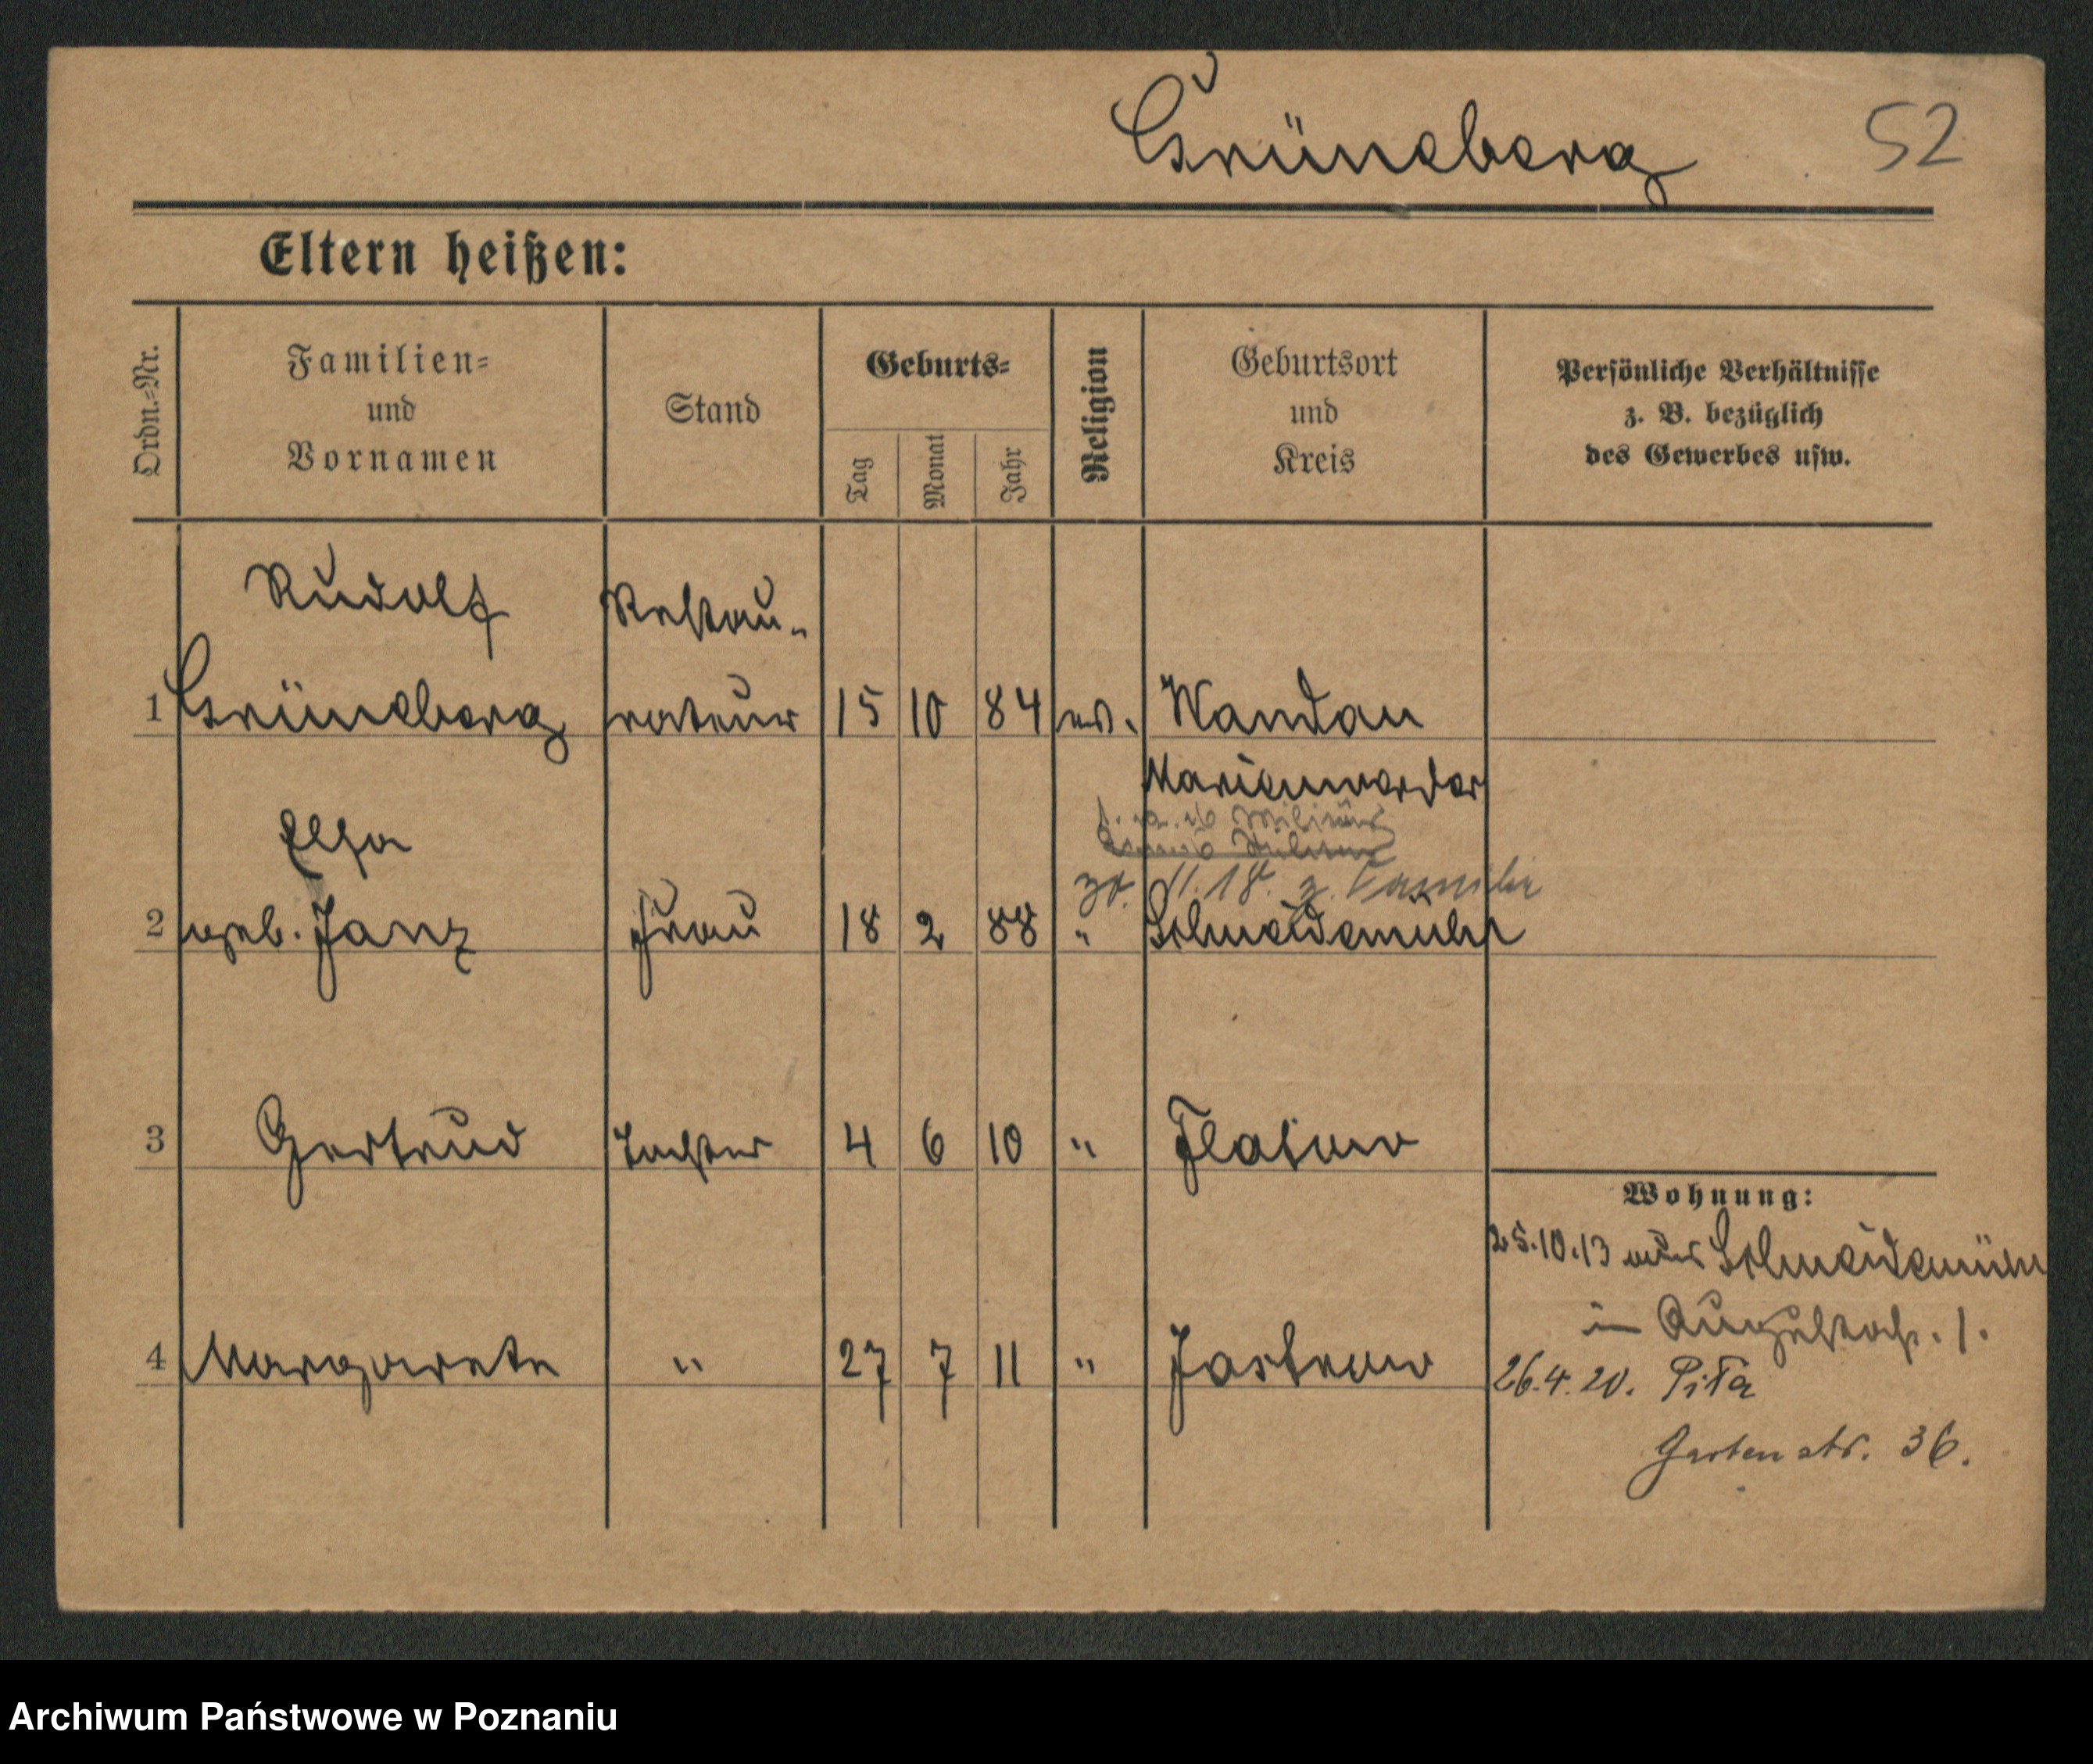 Grüneberg 52
Eltern heißen:
Ordn.-Nr. Familien- und Vornamen Stand Geburts- Tag Monat Jahr Religion Geburtsort und Kreis Persönliche Verhältnisse z. B. bezüglich des Gewerbes usw.
Rudolf Restau-
1 Grüneberg rateur 15 10 84 ev. Wandau
Marienwerder
Elsa
30. 11. 18. z. Familie
2 geb. Janz Frau 18 2 88 " Schneidemühl
3 Gertrud Tochter 4 6 10 " Flatow
4 Margarete " 27 7 11 " Jastrow
Wohnung:
25.10.13 aus Schneidemühl
in Augustastr. 1.
26.4.20. Piła
Gartenstr. 36.
Archiwum Państwowe w Poznaniu